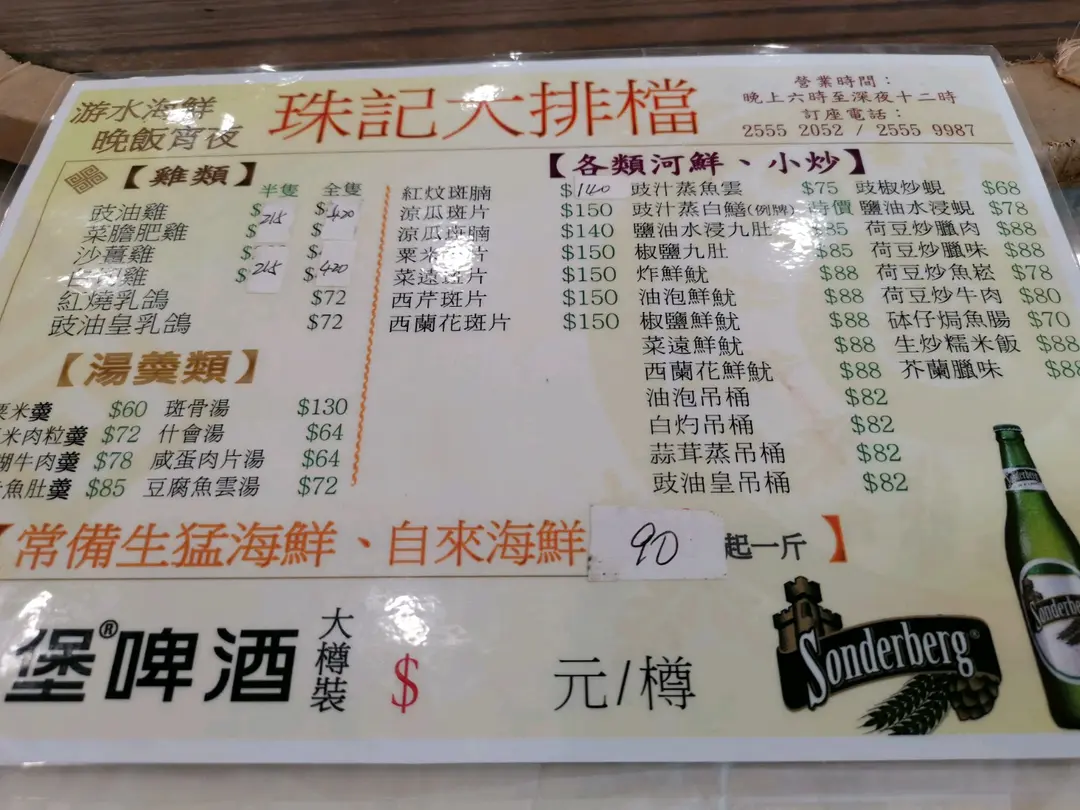 游水海鮮
晚飯宵夜
珠記大排檔
營業時間：
晚上六時至深夜十二時
訂座電話：
2555 2052 / 2555 9987
【雞類】
半隻 全隻
豉油雞 $215 $420
菜膽肥雞 $ $
沙薑雞 $ $
雞 $215 $420
紅燒乳鴿 $72
豉油皇乳鴿 $72
【湯羹類】
粟米羹 $60 斑骨湯 $130
米肉粒羹 $72 什會湯 $64
牛肉羹 $78 咸蛋肉片湯 $64
魚肚羹 $85 豆腐魚雲湯 $72
【各類河鮮、小炒】
紅炆斑腩 $140
涼瓜斑片 $150
涼瓜斑腩 $140
粟米斑片 $150
菜遠斑片 $150
西芹斑片 $150
西蘭花斑片 $150
豉汁蒸魚雲 $75
豉汁蒸白鱔(例牌) 特價
鹽油水浸九肚 $85
椒鹽九肚 $85
炸鮮魷 $88
油泡鮮魷 $88
椒鹽鮮魷 $88
菜遠鮮魷 $88
西蘭花鮮魷 $88
油泡吊桶 $82
白灼吊桶 $82
蒜茸蒸吊桶 $82
豉油皇吊桶 $82
豉椒炒蜆 $68
鹽油水浸蜆 $78
荷豆炒臘肉 $88
荷豆炒臘味 $88
荷豆炒魚崧 $78
荷豆炒牛肉 $80
砵仔焗魚腸 $70
生炒糯米飯 $88
芥蘭臘味 $88
【常備生猛海鮮、自來海鮮 90 起一斤】
堡®啤酒 大樽裝 $ 元/樽
Sonderberg®
Sonderberg
Sonderberg